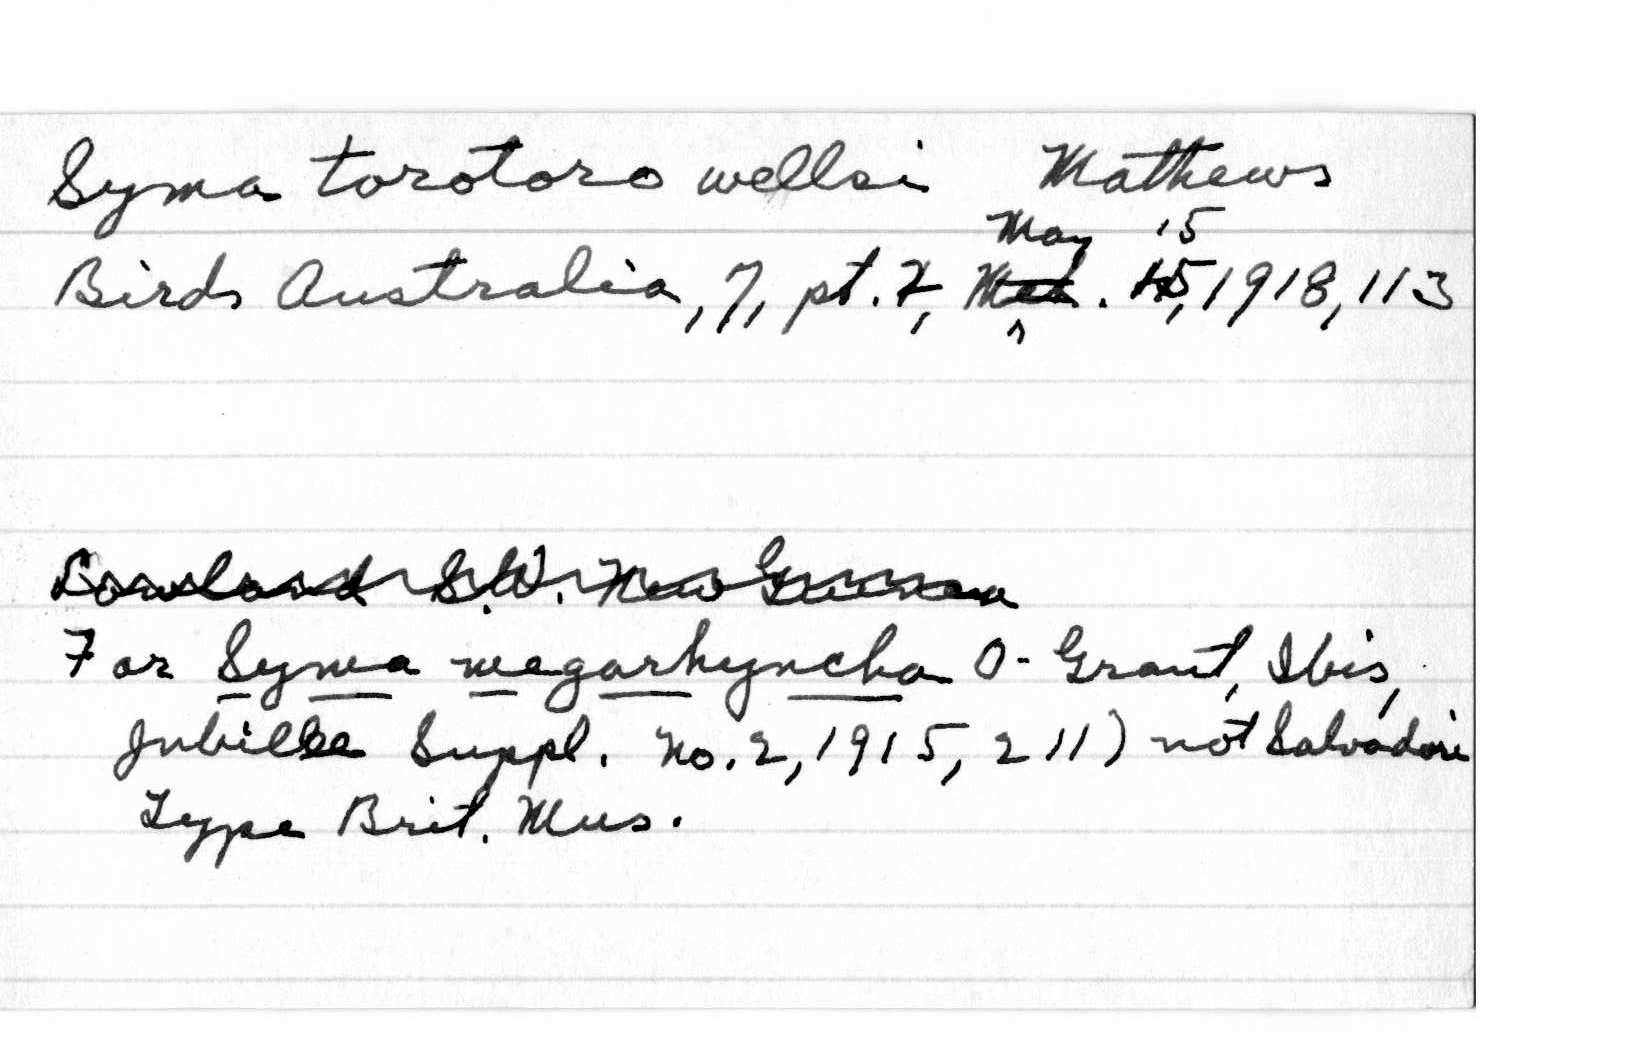 Syma torotoro wellsi Mathews
May 15
Birds Australia, 7, pt. 2, Mch. 15, 1918, 113
Lowland S.W. New Guinea
For Syma megarhyncha O-Grant, Ibis,
Jubilee Suppl. No. 2, 1915, 211) not Salvadori
Type Brit. Mus.